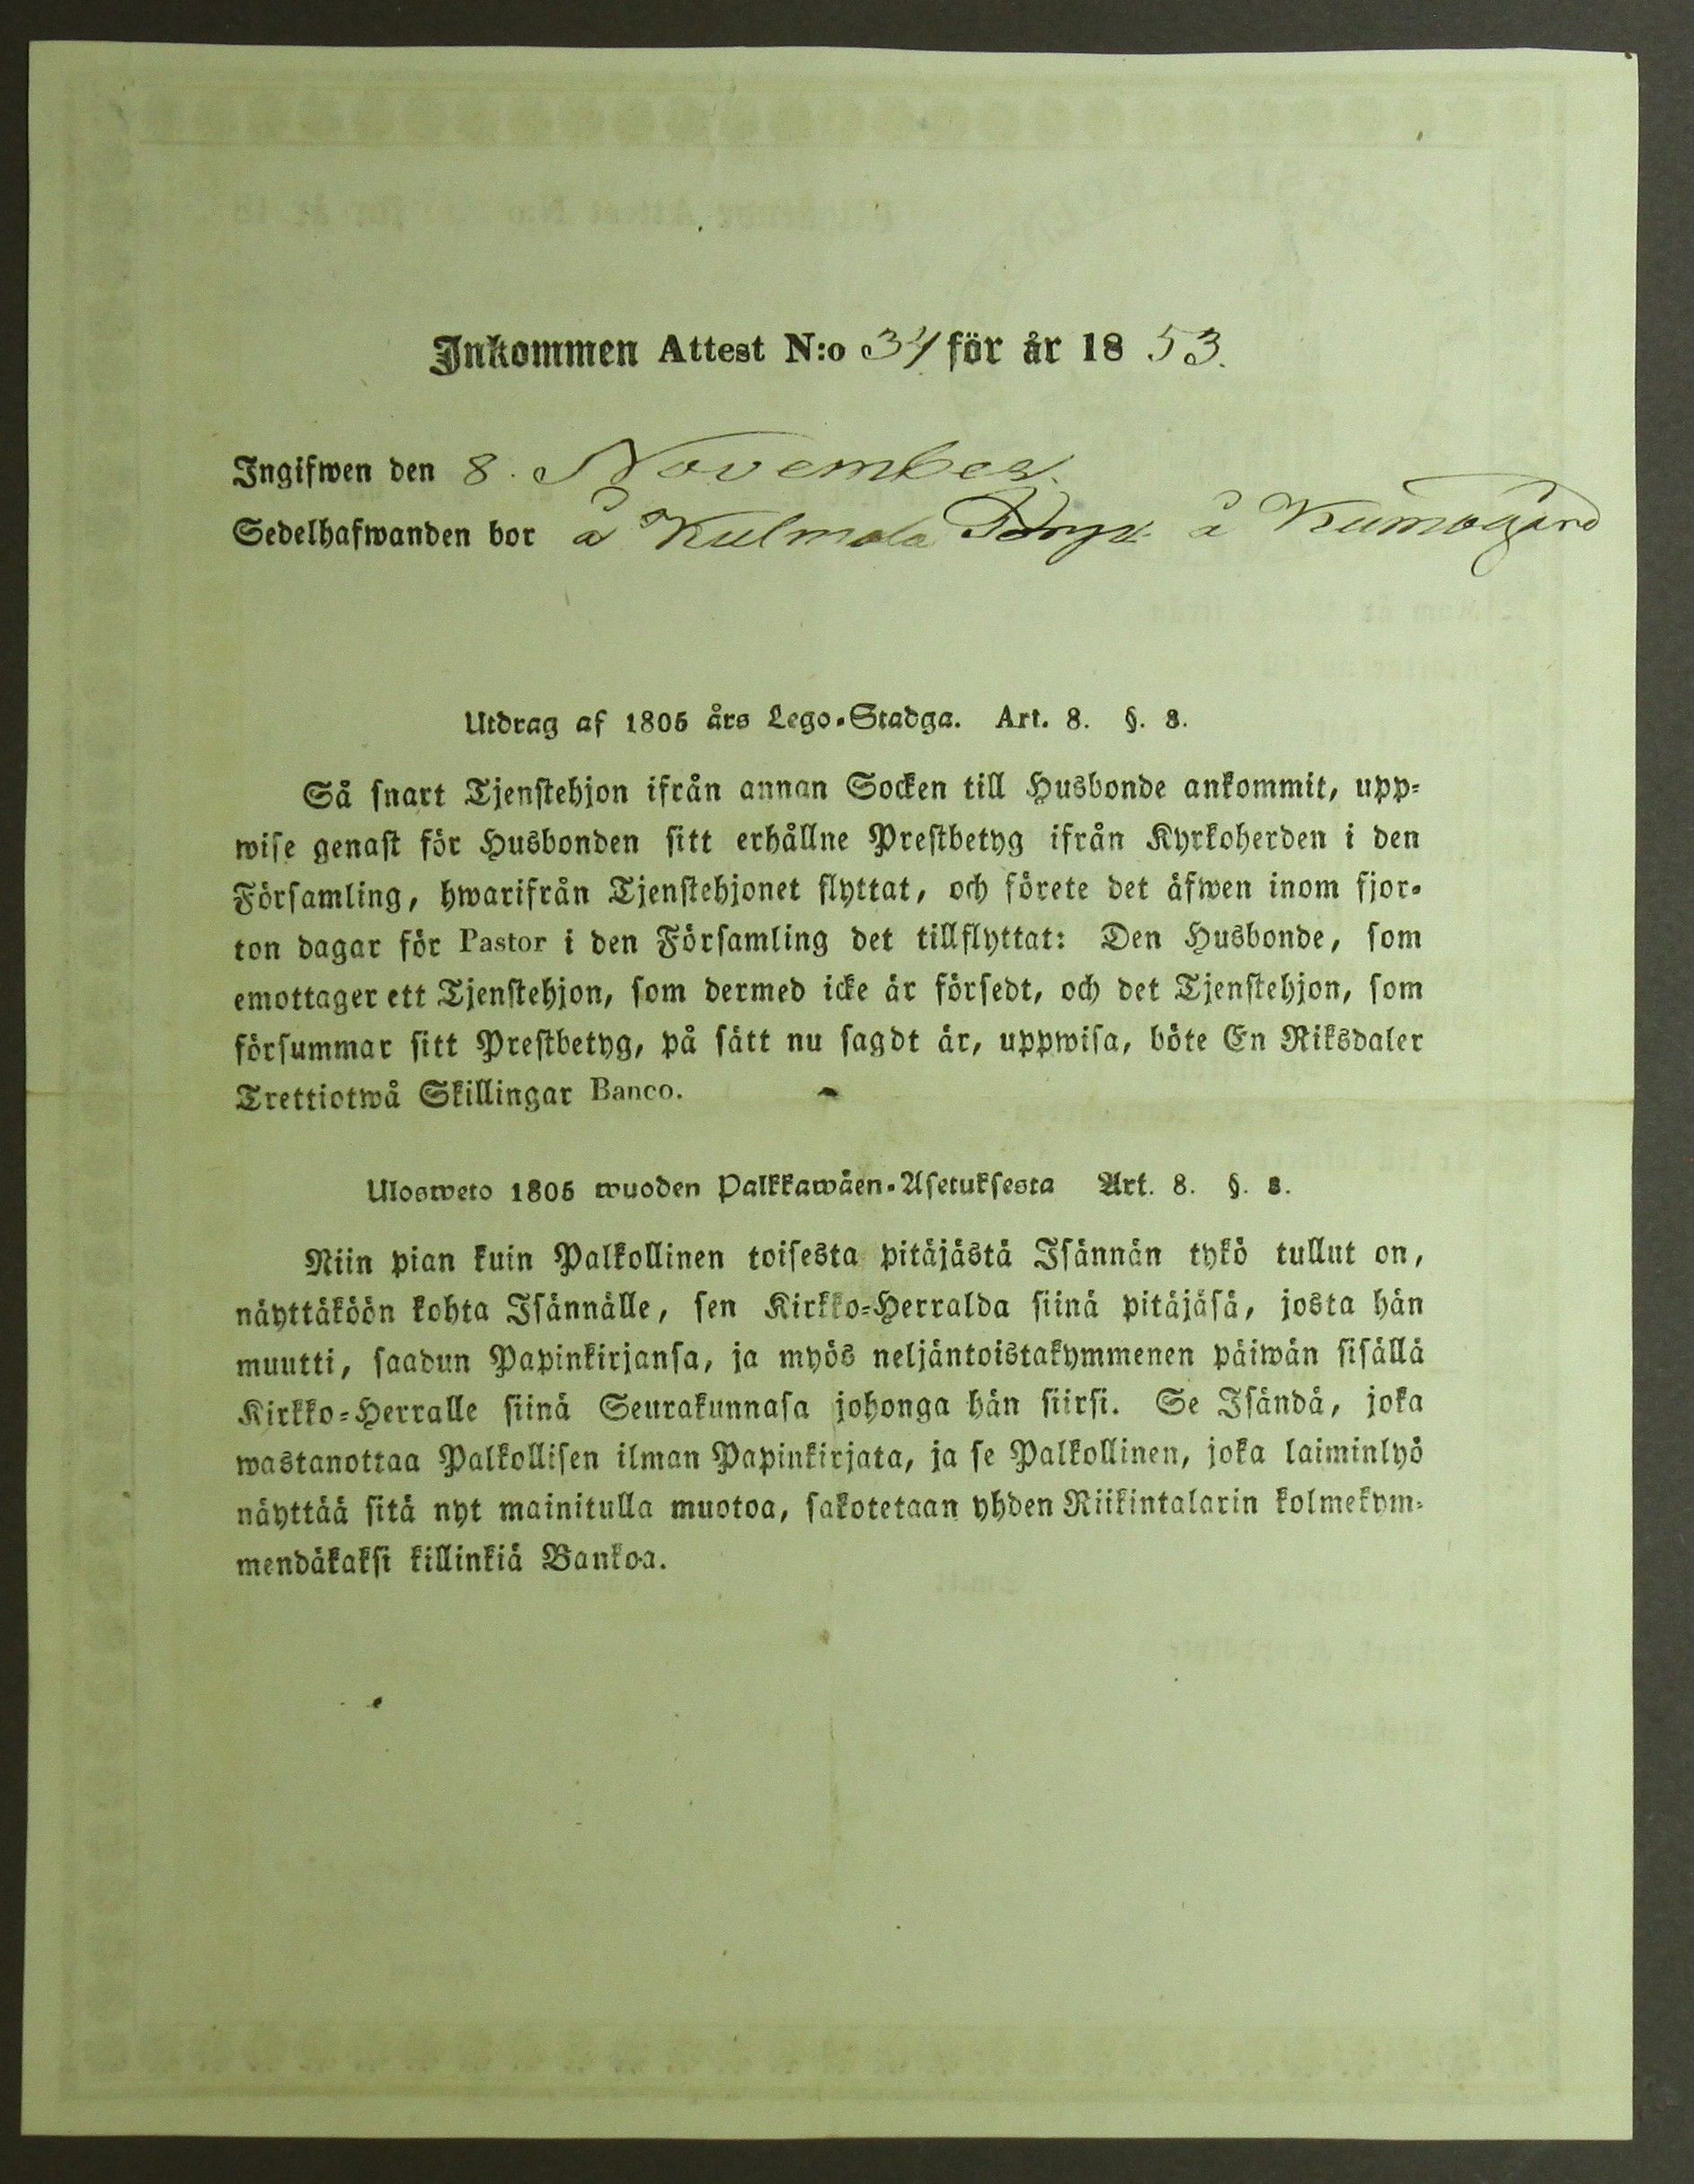 Inkommen Attest N:o 34 för år 1853.
Ingifwen den 8. November.
Sedelhafwanden bor å Kulmala Torp å Kumogård
Utdrag af 1805 års Lego-Stadga. Art. 8. §. 8.
Så snart Tjenstehjon ifrån annan Socken till Husbonde ankommit, upp-
wise genast för Husbonden sitt erhållne Prestbetyg ifrån Kyrkoherden i den
Församling, hwarifrån Tjenstehjonet flyttat, och förete det äfwen inom fjor-
ton dagar för Pastor i den Församling det tillflyttat: Den Husbonde, som
emottager ett Tjenstehjon, som dermed icke är försedt, och det Tjenstehjon, som
försummar sitt Prestbetyg, på sätt nu sagdt är, uppwisa, böte En Riksdaler
Trettiotwå Skillingar Banco.
Ulosweto 1805 wuoden Palkkawäen-Asetuksesta Art. 8. §. 8.
Niin pian kuin Palkollinen toisesta pitäjästä Isännän tykö tullut on,
näyttäköön kohta Isännälle, sen Kirkko-Herralda siinä pitäjäsä, josta hän
muutti, saadun Papinkirjansa, ja myös neljäntoistakymmenen päiwän sisällä
Kirkko-Herralle siinä Seurakunnasa johonga hän siirsi. Se Isändä, joka
wastanottaa Palkollisen ilman Papinkirjata, ja se Palkollinen, joka laiminlyö
näyttää sitä nyt mainitulla muotoa, sakotetaan yhden Riikintalarin kolmekym-
mendäkaksi killinkiä Bankoa.